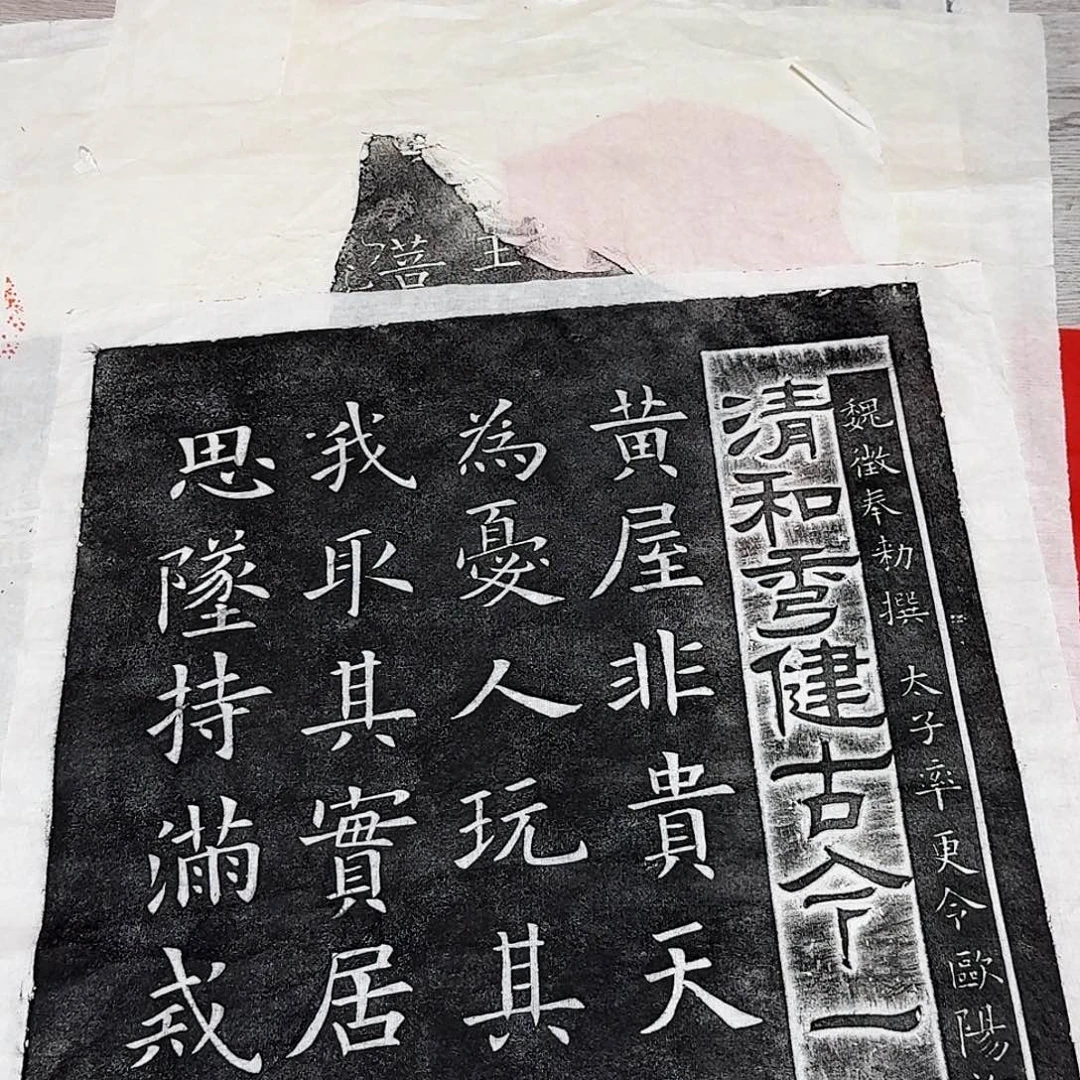 魏徵奉勑撰 太子率更令歐陽
清和秀健古今一
黄屋非貴天
為憂人玩其
我取其實居
思墜持滿戒
王